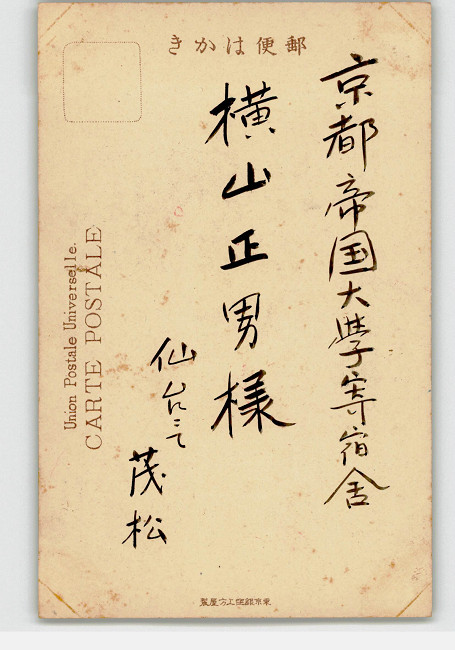 郵便はかき
京都帝国大學寄宿舎
横山正男様
仙台にて
茂松
Union Postale Universelle.
CARTE POSTALE
東京銀座上方屋製